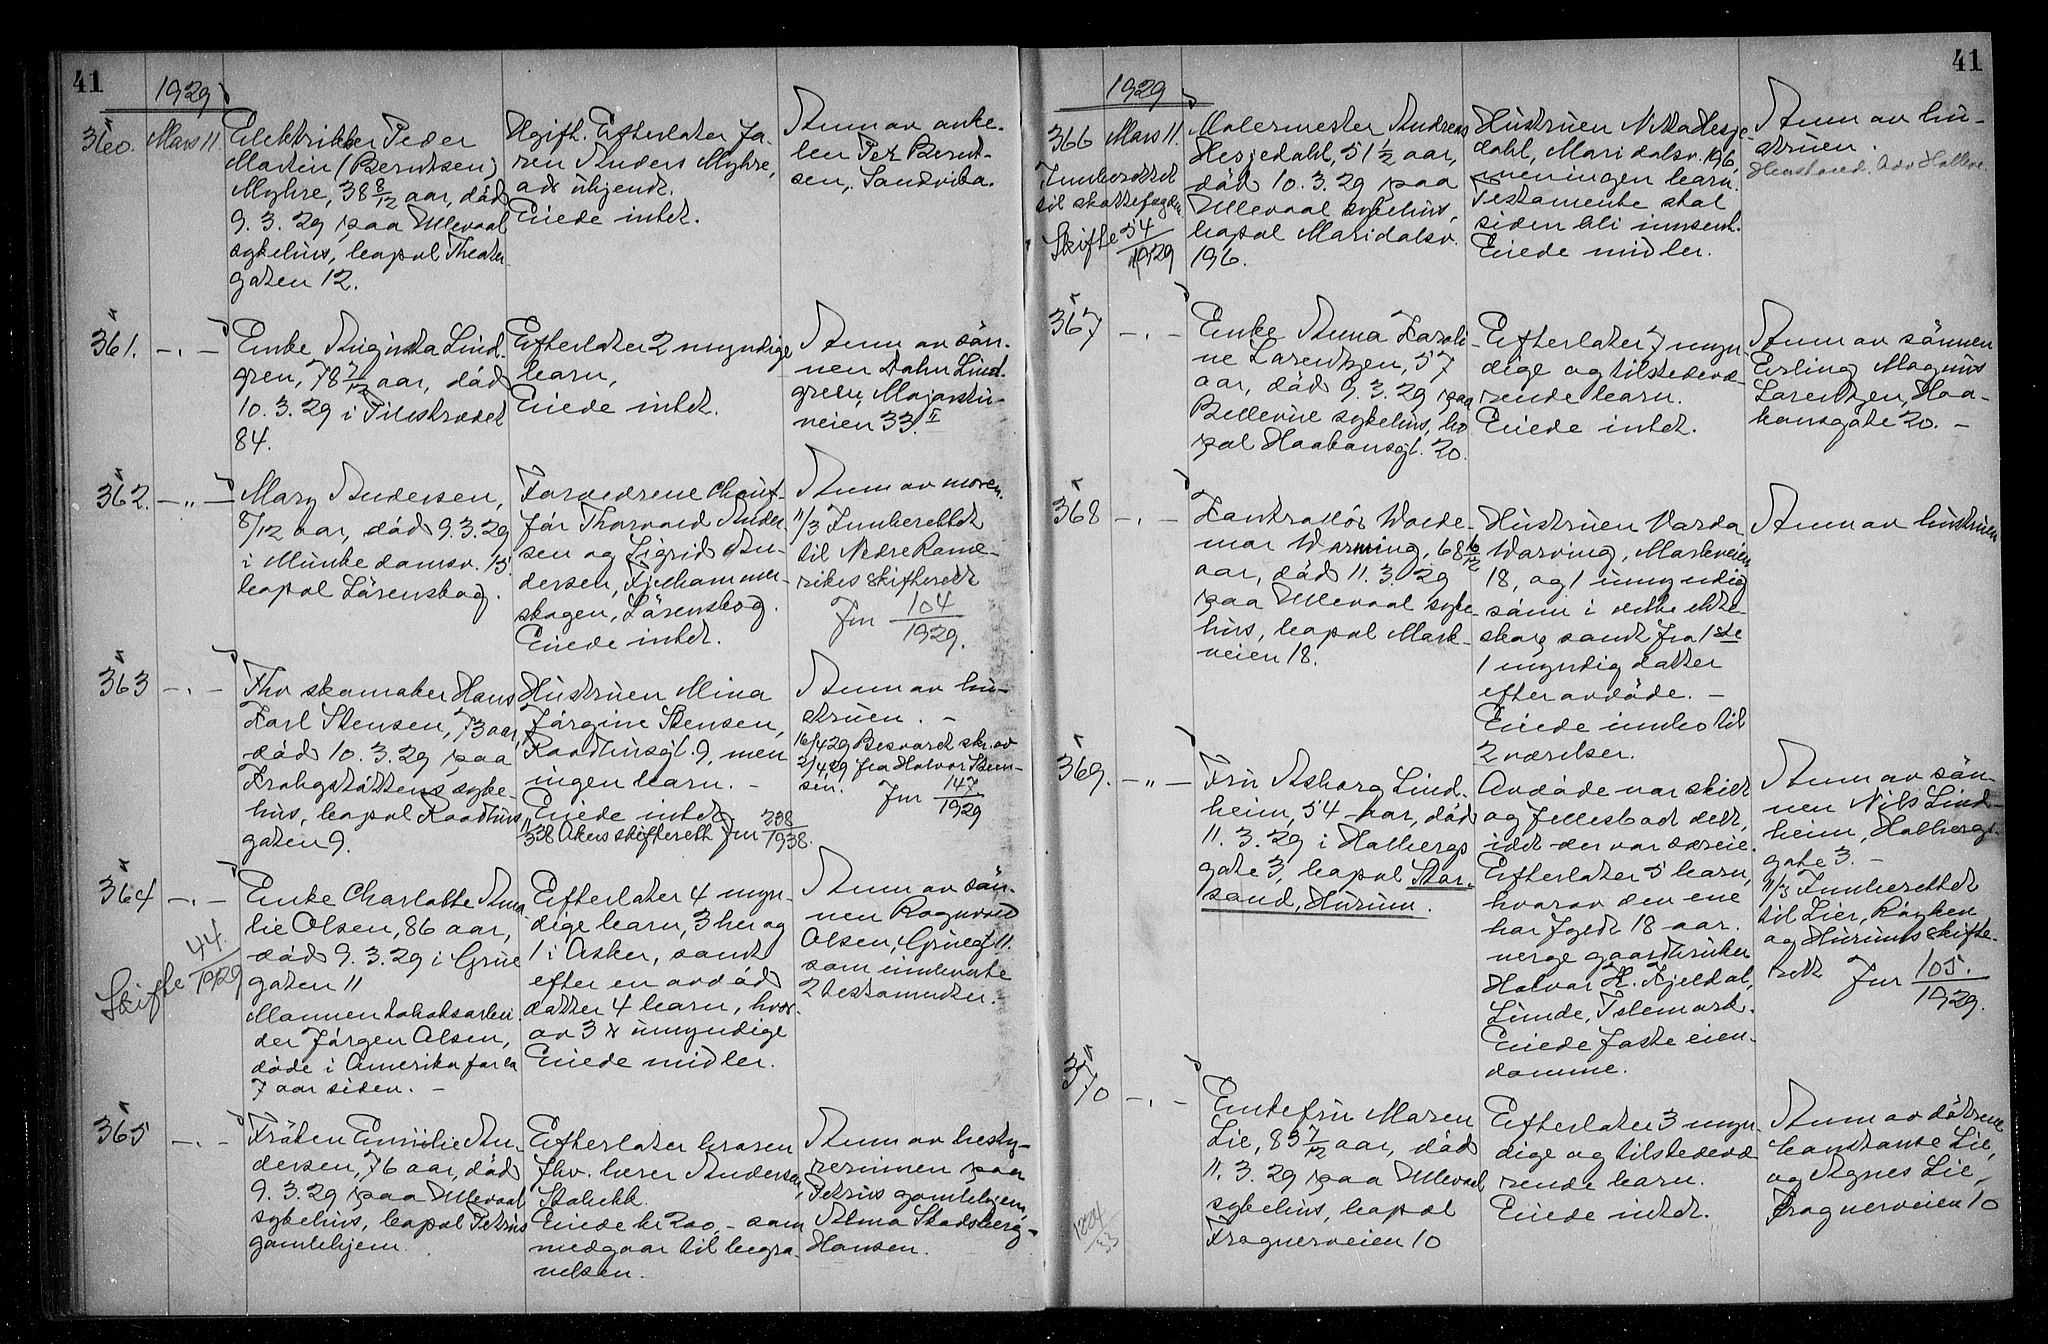 41
1929
360. Mars 11.
Elektrikker Peder
Martin (Berntsen)
Myhre, 38 8/12 aar, død
9.3.29 paa Ullevaal
sykehus, bopæl Theater-
gaten 12.
Ugift. Efterlater fa-
ren Anders Myhre,
adr ukjendt.
Eiede intet.
Anm av onke-
len Per Bernt-
sen, Sandvika.
361. -"-
Enke Augusta Lind-
gren, 78 7/12 aar, død
10.3.29 i Pilestrædet
84.
Efterlater 2 myndige
barn,
Eiede intet.
Anm av søn-
nen John Lind-
gren, Majorstu-
veien 33 II
362. -"-
Mary Andersen,
8/12 aar, død 9.3.29
i Munkedamsv. 15.
bopæl Lørenskog.
Forældrene chauf-
før Thorvald Ander-
sen og Sigrid An-
dersen, Fjelhammer-
skogen, Lørenskog.
Eiede intet.
Anm av moren.
11/3 Innberettet
til Nedre Rome-
rikes skifterett
Jnr 104/1929.
363 -"-
Fhv skomaker Hans
Karl Stensen, 73 aar,
død 10.3.29 paa
Krohgstøttens syke-
hus, bopæl Raadhus
gaten 9.
Hustruen Mina
Jørgine Stensen,
Raadhusgt. 9, men
ingen barn. -
Eiede intet
Akers skifterett Jnr 238/1938.
Anm av hu-
struen. -
16/4 29 Besvaret skr. av
2/4 29 fra Halvor Sten-
sen. Jnr 147/1929
364 -"-
Skifte 44/1929
Enke Charlotte Ama-
lie Olsen, 86 aar,
død 9.3.29 i Grue
gaten 11
Mannen tobaksarbei-
der Jørgen Olsen,
døde i Amerika for ca
7 aar siden. -
Efterlater 4 myn-
dige barn, 3 her og
1 i Asker, samt
efter en avdød
datter 4 barn, hvor-
av 3 umyndige
Eiede midler.
Anm av søn-
nen Ragnvald
Olsen, Gruegt 11.
som innleverte
2 testamenter.
365 -"-
Frøken Emilie An-
dersen, 76 aar, død
9.3.29 paa Ullevaal
sykehus, bopæl Petrus
gamlehjem.
Efterlater broren
fhv. lærer Andersen,
Stabekk.
Eiede kr 200,- som
medgaar til begra-
velsen.
Anm av besty-
rerinnen paa
Petrus gamlehjem,
Alma Stadsberg-
Hansen.
41
1929
366 Mars 11.
Innberettet
til skattefogden
Skifte 54/1929
Malermester Andreas
Hesjedahl, 51 1/2 aar,
død 10.3.29 paa
Ullevaal sykehus,
bopæl Maridalsv.
196.
Hustruen Nitta Hesje-
dahl, Maridalsv. 196,
men ingen barn.
Testamente skal
siden bli innsendt.
Eiede midler.
Anm av hu-
struen.
367 -"-
Enke Anna Karoli-
ne Larentzen, 57
aar, død 9.3.29 paa
Bellevue sykehus, bo
pæl Haakonsgt. 20.
Efterlater 7 myn-
dige og tilstedevæ-
rende barn.
Eiede intet.
Anm av sønnen
Erling Magnus
Larentzen, Haa-
konsgate 20. -
368 -"-
Kontrollør Walde-
mar Warming, 68 6/12
aar, død 11.3.29
paa Ullevaal syke-
hus, bopæl Mark-
veien 18.
Hustruen Varda
Warving, Markveien
18, og 1 umyndig
sønn i dette ekte-
skap samt fra 1ste
1 myndig datter
efter avdøde. -
Eiede innbo til
2 værelser.
Anm av hustruen
369. -"-
Fru Asborg Lind-
heim, 54 aar, død
11.3.29 i Holbergs
gate 3, bopæl Stor-
sand, Hurum.
Avdøde var skilt
og fellesbodelt,
idet der var særeie.
Efterlater 5 barn,
hvorav den ene
har fyldt 18 aar.
verge gaardbruker
Halvor H. Fjeldal,
Lunde, Telemark.
Eiede faste eien-
domme.
Anm av søn-
nen Nils Lind-
heim, Holbergs-
gate 3. -
11/3 Innberettet
til Lier, Røyken
og Hurums skifte-
rett Jnr 105/1929.
370 -"-
Enkefru Maren
Lie, 83 7/12 aar, død
11.3.29 paa Ullevaal
sykehus, bopæl
Frognerveien 10
Efterlater 3 myn-
dige og tilstedevæ
rende barn.
Eiede intet.
Anm av døtrene
Constanse Lie,
og Agnes Lie,
Frognerveien 10